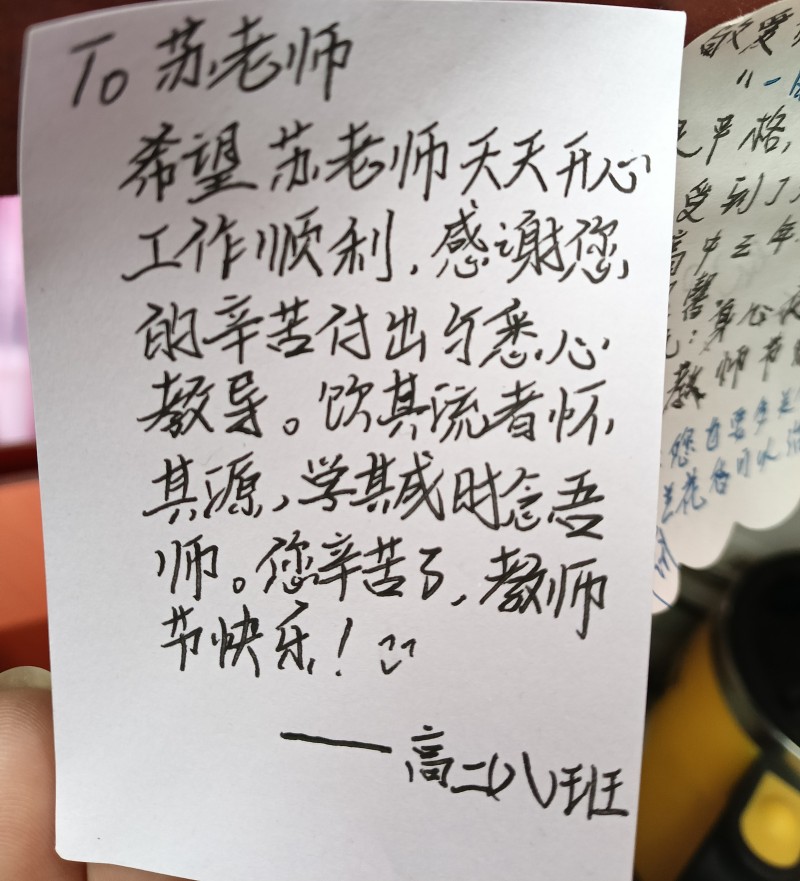 To 苏老师
希望苏老师天天开心
工作顺利,感谢您
的辛苦付出与悉心
教导。饮其流者怀
其源,学其成时念吾
师。您辛苦了,教师
节快乐!
——高二八班
敬爱
"一
严格,
受到了
高中三年
馨
身心
教师节
您
花香